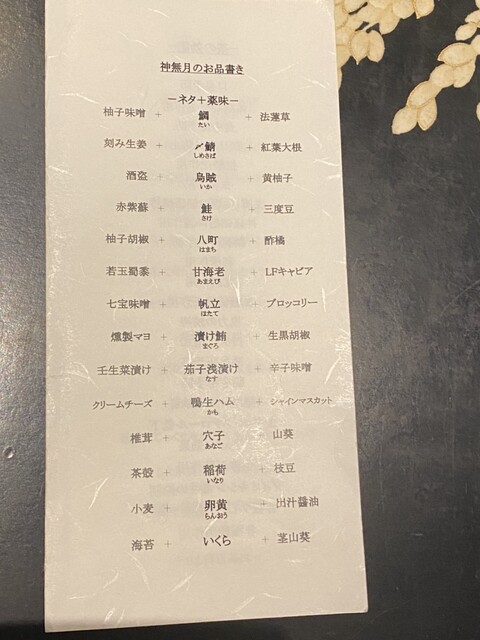 神無月のお品書き
－ネタ＋薬味－
柚子味噌 + 鯛 + 法蓮草
たい
刻み生姜 + 〆鯖 + 紅葉大根
しめさば
酒盗 + 烏賊 + 黄柚子
いか
赤紫蘇 + 鮭 + 三度豆
さけ
柚子胡椒 + 八町 + 酢橘
はまち
若玉蜀黍 + 甘海老 + LFキャビア
あまえび
七宝味噌 + 帆立 + ブロッコリー
ほたて
燻製マヨ + 漬け鮪 + 生黒胡椒
まぐろ
壬生菜漬け + 茄子浅漬け + 辛子味噌
なす
クリームチーズ + 鴨生ハム + シャインマスカット
かも
椎茸 + 穴子 山葵
あなご
茶殻 + 稲荷 + 枝豆
いなり
小麦 + 卵黄 + 出汁醤油
らんおう
海苔 + いくら + 茎山葵